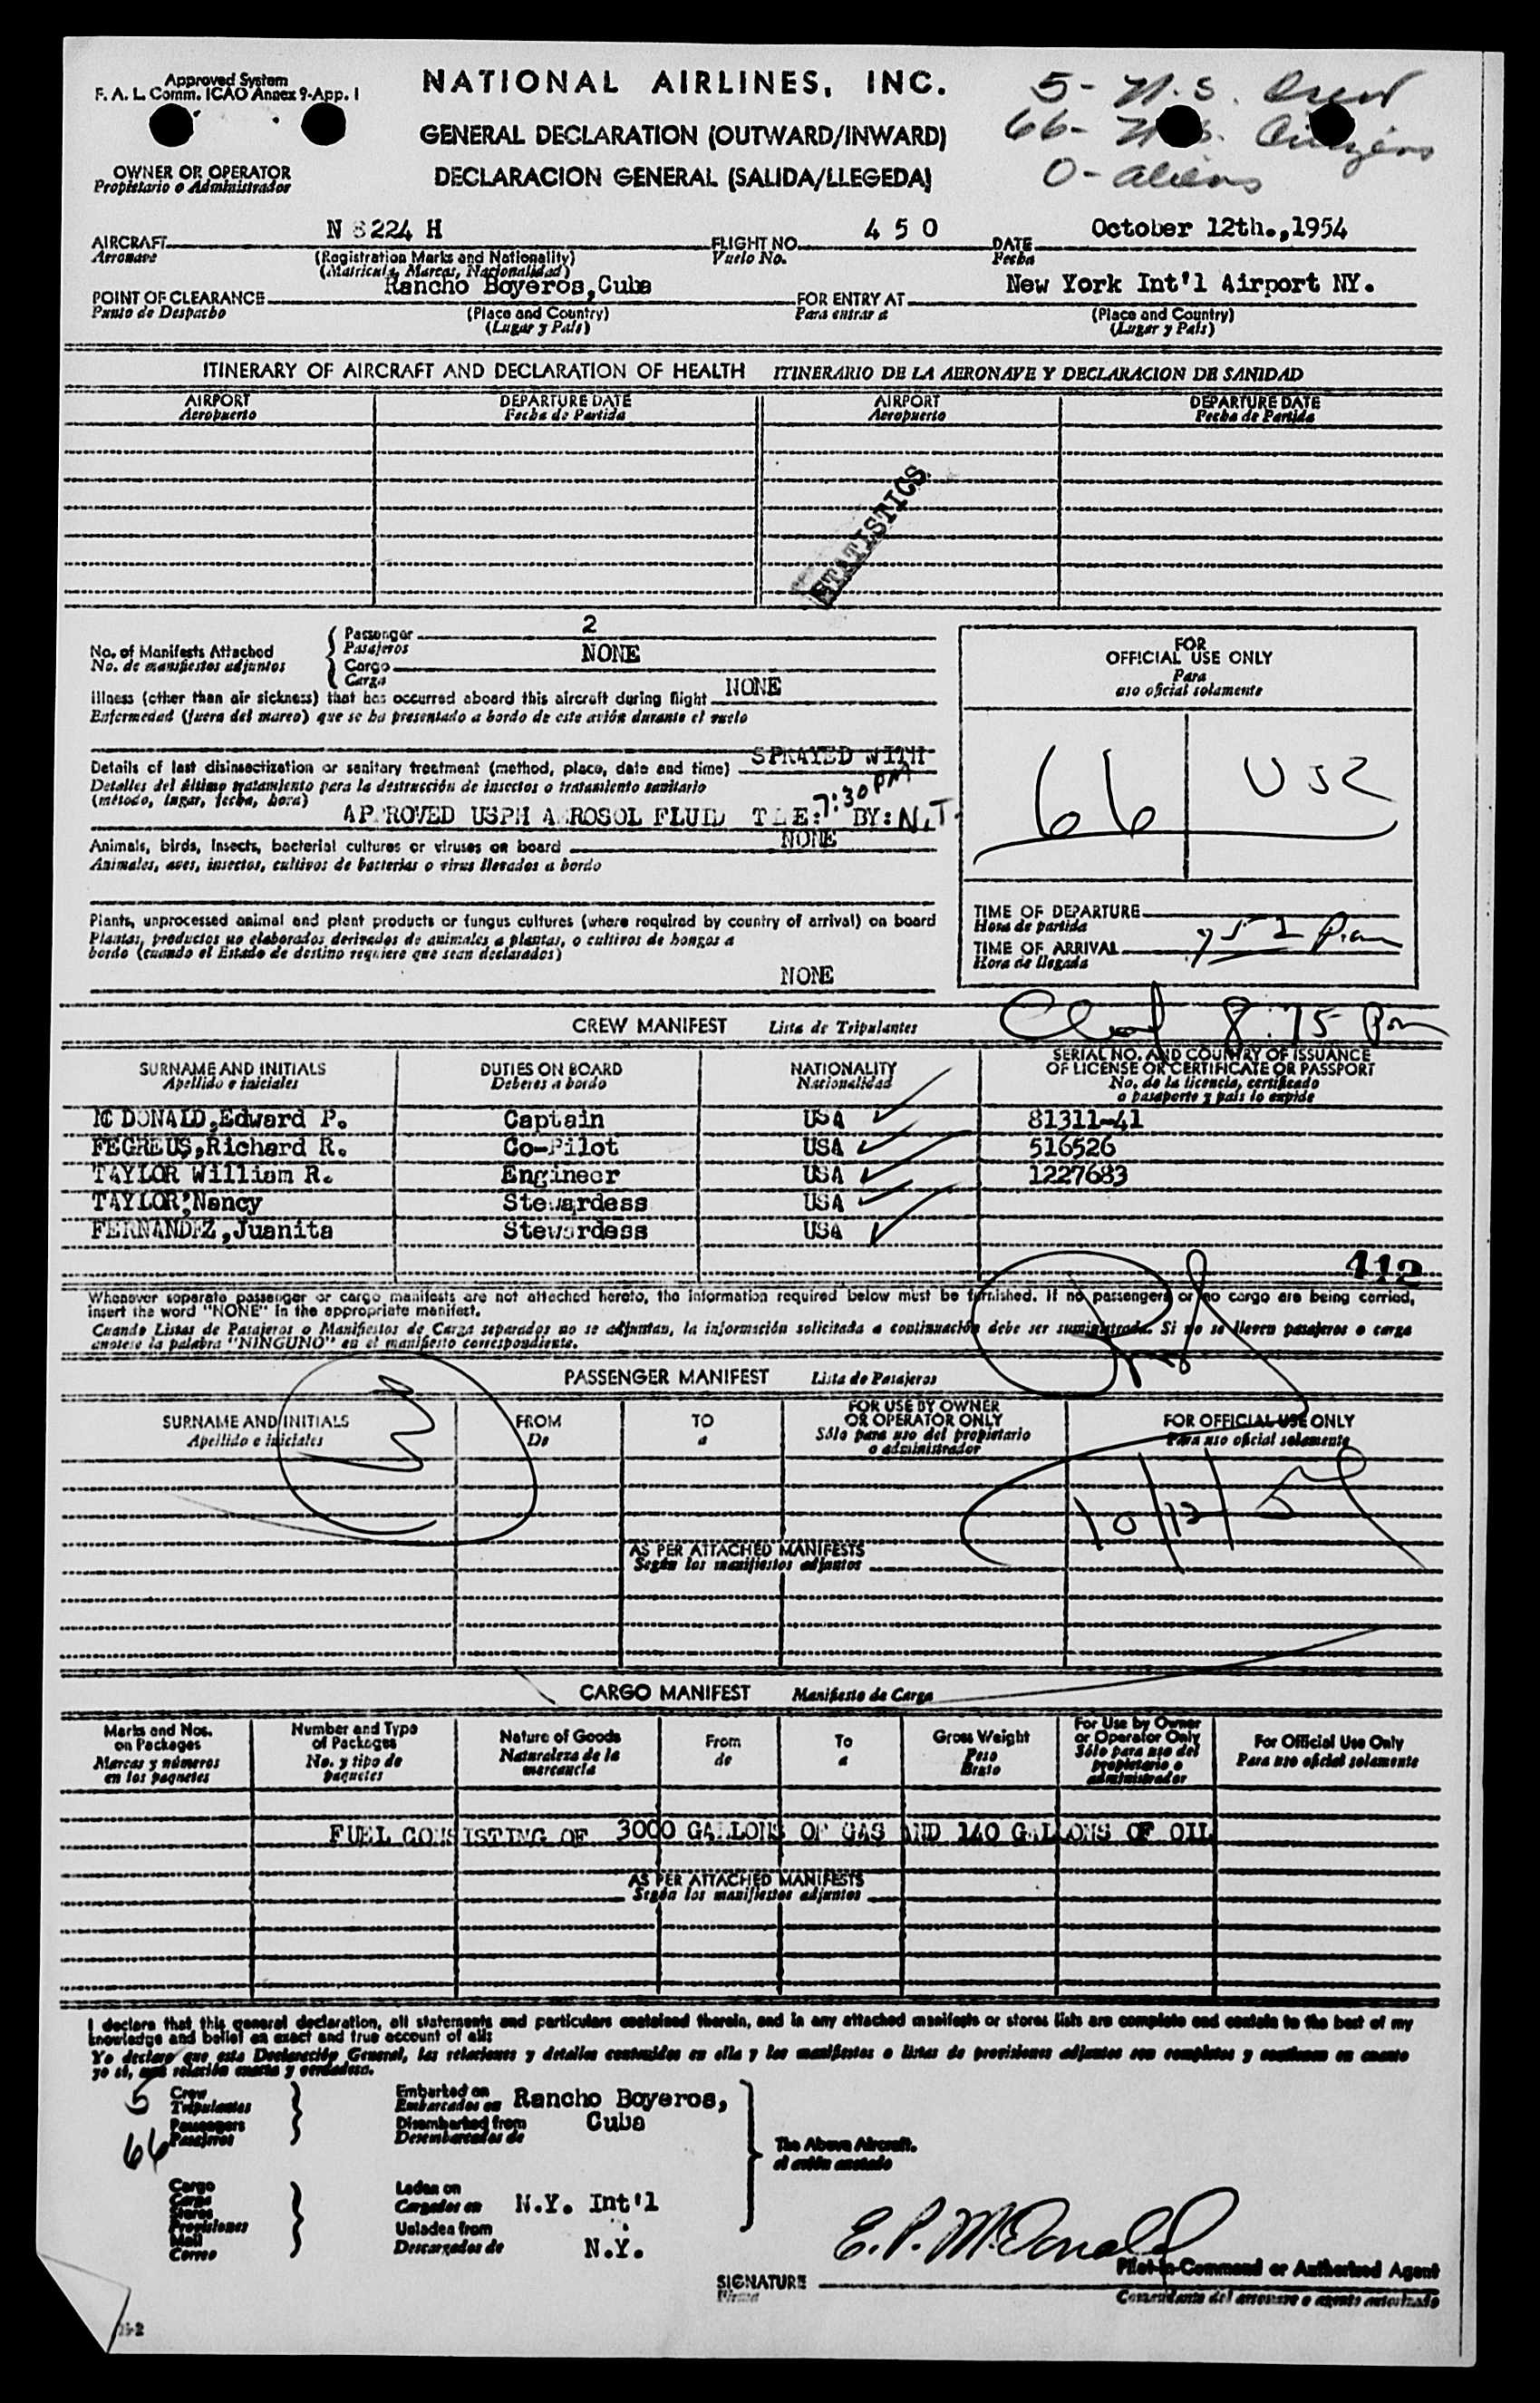 Approved System
F. A. L. Comm. ICAO Annex 9-App. 1
NATIONAL AIRLINES, INC.
GENERAL DECLARATION (OUTWARD/INWARD)
DECLARACION GENERAL (SALIDA/LLEGEDA)
5- U.S. Crew
66- U.S. Citizens
0- aliens
OWNER OR OPERATOR
Propietario o Administrador
AIRCRAFT N 8224 H FLIGHT NO. 4 5 0 DATE October 12th.,1954
Aeronave (Registration Marks and Nationality) Vuelo No. Fecha
(Matricula, Marcas, Nacionalidad)
POINT OF CLEARANCE Rancho Boyeros,Cuba FOR ENTRY AT New York Int'l Airport NY.
Punto de Despacho (Place and Country) Para entrar a (Place and Country)
(Lugar y País) (Lugar y País)
ITINERARY OF AIRCRAFT AND DECLARATION OF HEALTH ITINERARIO DE LA AERONAVE Y DECLARACION DE SANIDAD
AIRPORT DEPARTURE DATE AIRPORT DEPARTURE DATE
Aeropuerto Fecha de Partida Aeropuerto Fecha de Partida
STATISTICS
No. of Manifests Attached
No. de manifiestos adjuntos
Passenger 2
Pasajeros
Cargo NONE
Carga
Illness (other than air sickness) that has occurred aboard this aircraft during flight NONE
Enfermedad (fuera del mareo) que se ha presentado a bordo de este avión durante el vuelo
Details of last disinsectization or sanitary treatment (method, place, date and time) SPRAYED WITH
Detalles del último tratamiento para la destrucción de insectos o tratamiento sanitario
(método, lugar, fecha, hora)
APPROVED USPH AEROSOL FLUID 7:30 PM BY: N.T.
Animals, birds, insects, bacterial cultures or viruses on board NONE
Animales, aves, insectos, cultivos de bacterias o virus llevados a bordo
Plants, unprocessed animal and plant products or fungus cultures (where required by country of arrival) on board
Plantas, productos no elaborados derivados de animales a plantas, o cultivos de hongos a
bordo (cuando el Estado de destino requiere que sean declarados)
NONE
FOR
OFFICIAL USE ONLY
Para
uso oficial solamente
66 USC
TIME OF DEPARTURE
Hora de partida
TIME OF ARRIVAL 752 Pm
Hora de llegada
CREW MANIFEST Lista de Tripulantes
8:15 Pm
SURNAME AND INITIALS DUTIES ON BOARD NATIONALITY SERIAL NO. AND COUNTRY OF ISSUANCE
OF LICENSE OR CERTIFICATE OR PASSPORT
Apellido e iniciales Deberes a bordo Nacionalidad No. de la licencia, certificado
o pasaporte y país lo expide
MC DONALD,Edward P. Captain USA 81311-41
FEGREUS,Richard R. Co-Pilot USA 516526
TAYLOR William R. Engineer USA 1227683
TAYLOR,Nancy Stewardess USA
FERNANDEZ,Juanita Stewardess USA
412
Whenever separate passenger or cargo manifests are not attached hereto, the information required below must be furnished. If no passengers or no cargo are being carried,
insert the word "NONE" in the appropriate manifest.
Cuando Listas de Pasajeros o Manifiestos de Carga separados no se adjuntan, la información solicitada a continuación debe ser suministrada. Si no se lleven pasajeros o carga
anotese la palabra "NINGUNO" en el manifiesto correspondiente.
PASSENGER MANIFEST Lista de Pasajeros
SURNAME AND INITIALS FROM TO FOR USE BY OWNER
OR OPERATOR ONLY FOR OFFICIAL USE ONLY
Apellido e iniciales De a Sólo para uso del propietario
o administrador Para uso oficial solamente
10/12/54
AS PER ATTACHED MANIFESTS
Según los manifiestos adjuntos
CARGO MANIFEST Manifiesto de Carga
Marks and Nos.
on Packages
Marcas y números
en los paquetes
Number and Type
of Packages
No. y tipo de
paquetes
Nature of Goods
Naturaleza de la
mercancia
From
de
To
a
Gross Weight
Peso
Bruto
For Use by Owner
or Operator Only
Sólo para uso del
propietario o
administrador
For Official Use Only
Para uso oficial solamente
FUEL CONSISTING OF 3000 GALLONS OF GAS AND 140 GALLONS OF OIL
AS PER ATTACHED MANIFESTS
Según los manifiestos adjuntos
I declare that this general declaration, all statements and particulars contained therein, and in any attached manifests or stores lists are complete and contain to the best of my
knowledge and belief an exact and true account of all:
Yo declaro que esta Declaración General, las relaciones y detalles contenidos en ella y los manifiestos o listas de provisiones adjuntos son completos y contienen en cuanto
yo sé, una relación exacta y verdadera.
5 Crew
Tripulantes
66 Passengers
Pasajeros
Embarked on Rancho Boyeros,
Embarcados en
Disembarked from Cuba
Desembarcados de
The Above Aircraft.
el avión anotado
Cargo
Carga
Stores
Provisiones
Mail
Correo
Laden on
Cargados en N.Y. Int'l
Unladen from
Descargados de N.Y.
E. P. McDonald
Pilot-in-Command or Authorized Agent
SIGNATURE
Firma
Comandante del aeronave o agente autorizado